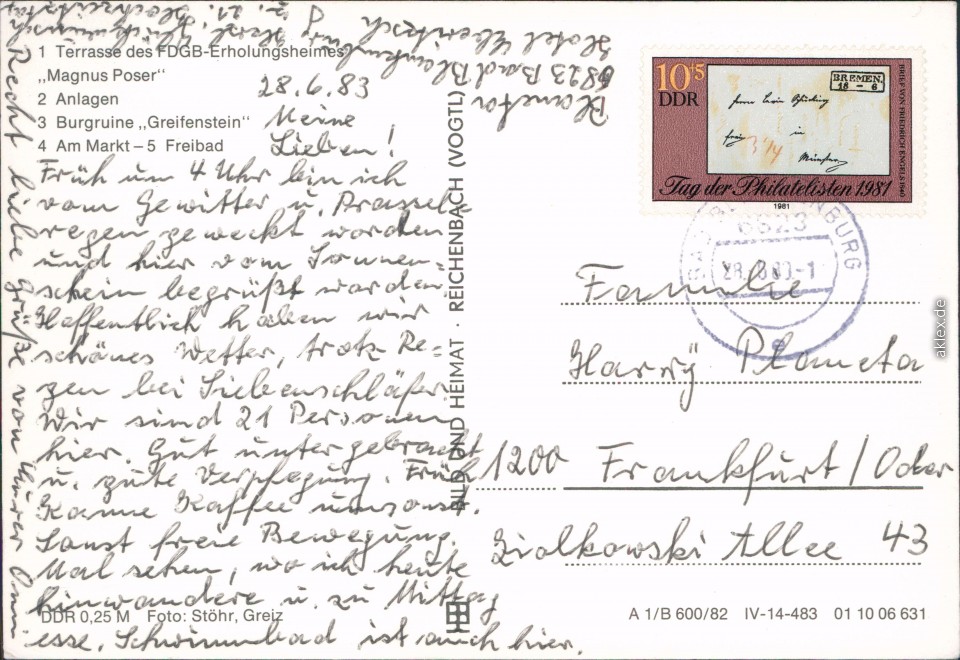 1 Terrasse des FDGB-Erholungsheimes
„Magnus Poser"
2 Anlagen
3 Burgruine „Greifenstein"
4 Am Markt – 5 Freibad
28.6.83
Meine
Lieben!
Früh um 4 Uhr bin ich
vom Gewitter u. Prassel-
regen geweckt worden
und hier vom Sonnen=
schein begrüßt worden
Hoffentlich haben wir
schönes Wetter, trotz Re=
gen bei Siebenschläfer.
Wir sind 21 Personen
hier. Gut untergebracht
u. gute Verpflegung. Früh
Kanne Kaffee umsonst.
Sonst freie Bewegung.
Mal sehen, wo ich heute
hinwandere u. zu Mittag
esse. Schwimmbad ist auch hier.
Recht liebe Grüße von Eurer Omi
Planeta
6823 Bad Blankenburg
Hotel
z. 21.
DDR 0,25 M Foto: Stöhr, Greiz
BILD UND HEIMAT · REICHENBACH (VOGTL)
10+5
DDR
BREMEN.
15 – 6
Münster
BRIEF VON FRIEDRICH ENGELS 1840
Tag der Philatelisten 1981
1981
6823
Familie
Harry Planeta
1200 Frankfurt/Oder
Ziolkowski Allee 43
A 1/B 600/82 IV-14-483 01 10 06 631
aklex.de